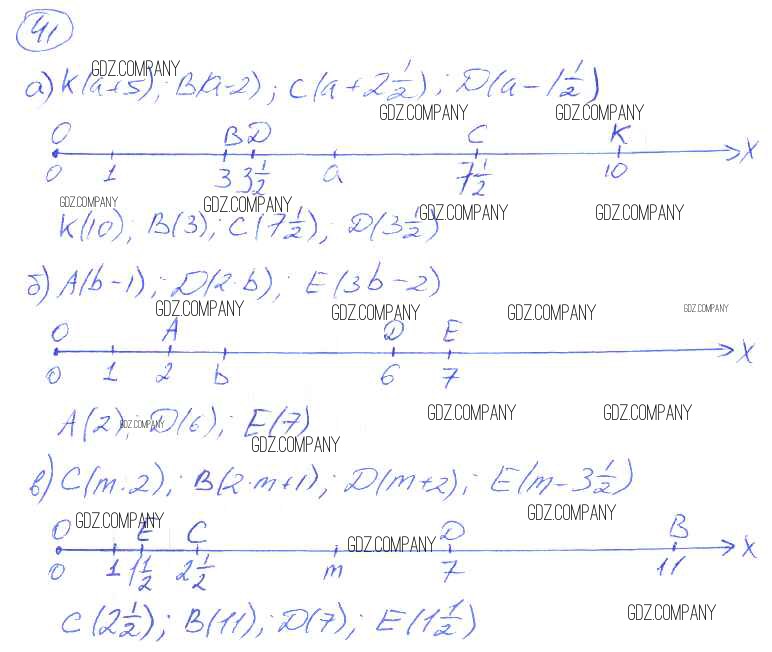 41
GDZ.COMPANY
а) K(a+5); B(a-2); C(a+2 1/2); D(a-1 1/2)
GDZ.COMPANY GDZ.COMPANY
O B D C K
0 1 3 3 1/2 a 7 1/2 10 X
GDZ.COMPANY GDZ.COMPANY GDZ.COMPANY GDZ.COMPANY
K(10); B(3); C(7 1/2); D(3 1/2)
б) A(b-1); D(2·b); E(3b-2)
GDZ.COMPANY GDZ.COMPANY GDZ.COMPANY GDZ.COMPANY
O A D E
0 1 2 b 6 7 X
A(2); D(6); E(7)
GDZ.COMPANY GDZ.COMPANY GDZ.COMPANY
GDZ.COMPANY
в) C(m·2); B(2·m+1); D(m+2); E(m-3 1/2)
GDZ.COMPANY GDZ.COMPANY
O E C D B
GDZ.COMPANY
0 1 1 1/2 2 1/2 m 7 11 X
C(2 1/2); B(11); D(7); E(1 1/2)
GDZ.COMPANY